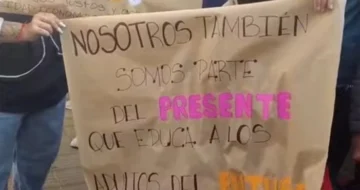 NOSOTROS TAMBIÉN
SOMOS PARTE
DEL PRESENTE
QUE EDUCA A LOS
DEL